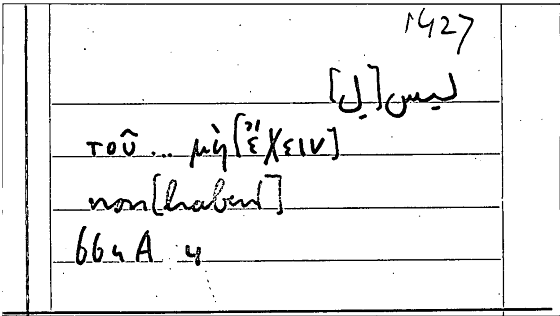 1427
ليس[ل]
τοῦ... μὴ [ἔχειν]
non [habent]
664 A 4